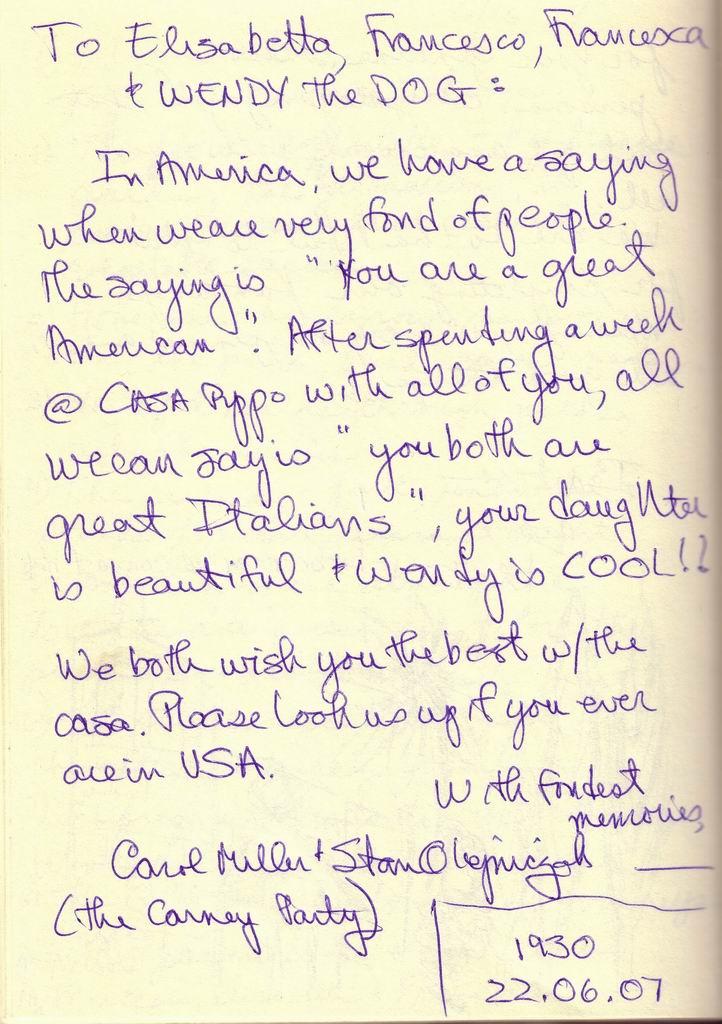 To Elisabetta, Francesco, Francesca
& WENDY the DOG:
In America, we have a saying
when we are very fond of people.
The saying is "You are a great
American". After spending a week
@ CASA Pippo with all of you, all
we can say is "you both are
great Italians", your daughter
is beautiful & Wendy is COOL!!
We both wish you the best w/ the
casa. Please look us up if you ever
are in USA.
With fondest
memories,
Carol Miller + Stan Olejniczak
(the Carney Party)
1930
22.06.07